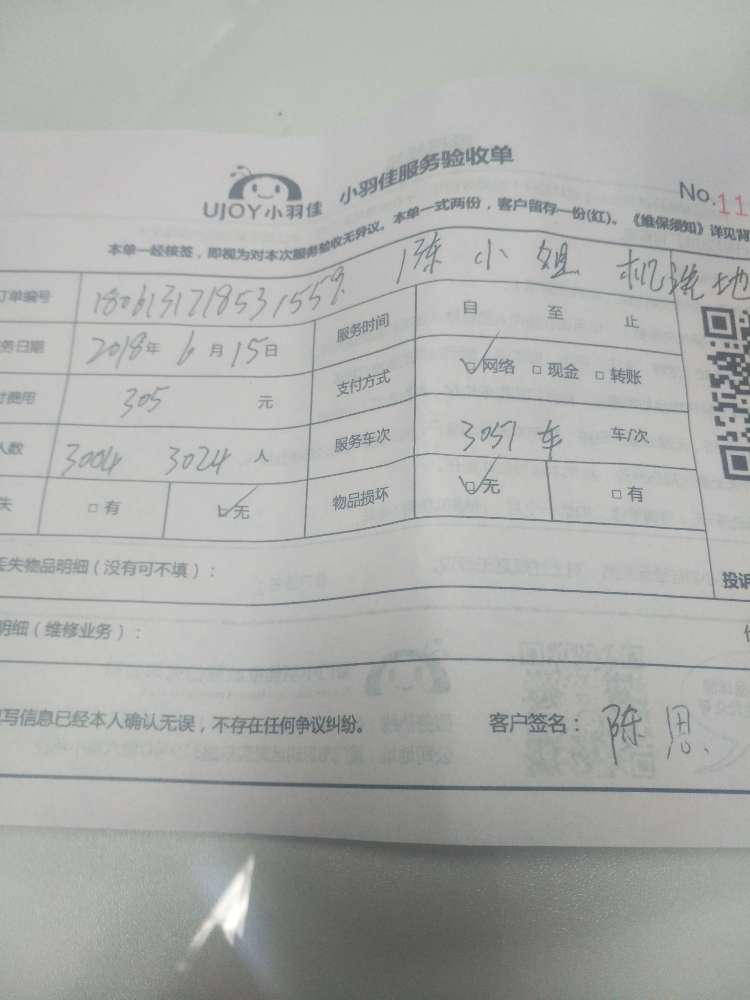 UJOY小羽佳 小羽佳服务验收单 No.11
本单一经核签，即视为对本次服务验收无异议。本单一式两份，客户留存一份(红)。《维保须知》详见背
陈小姐 机洗地
订单编号 180613171853155 服务时间 自 至 止
务日期 2018年6月15日 支付方式 网络 现金 转账
付费用 305 元
人数 3004 3024 人 服务车次 3057车 车/次
失 有 无 物品损坏 无 有
丢失物品明细（没有可不填）： 投诉
明细（维修业务）：
写信息已经本人确认无误，不存在任何争议纠纷。 客户签名：陈思